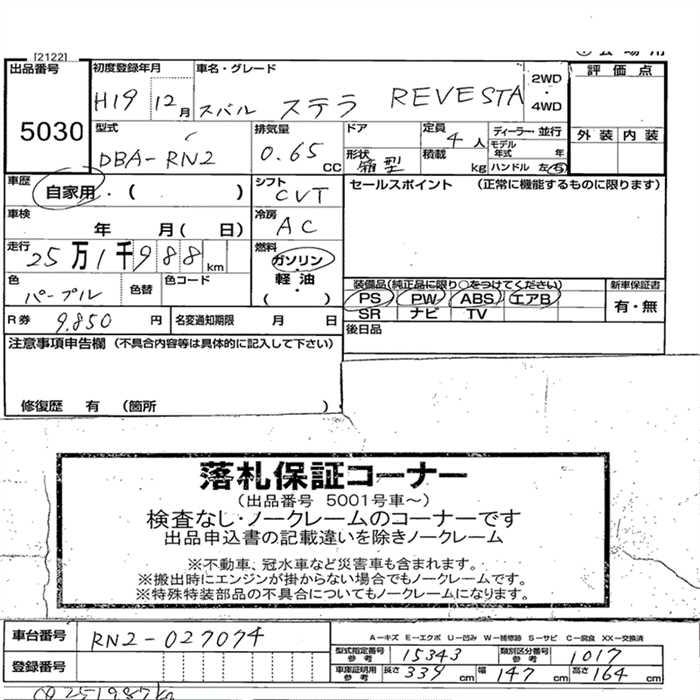 [2122]
出品番号 5030
初度登録年月 H19 12月
車名・グレード スバル ステラ REVESTA
2WD・4WD
評価点
外装 内装
型式 DBA-RN2
排気量 0.65 CC
ドア 形状 箱型
定員 4人 積載 kg
ディーラー・並行
モデル年式 年
ハンドル 左・右
車歴 自家用・( )
シフト CVT
セールスポイント (正常に機能するものに限ります)
車検 年 月( 日)
冷房 AC
走行 25万1千988km
燃料 ガソリン・軽油・( )
色 パープル 色替 色コード
装備品(純正品に限り○をつけてください)
PS PW ABS エアB
SR ナビ TV
新車保証書 有・無
R券 9.850円 名変通知期限 月 日
後日品
注意事項申告欄 (不具合内容等は具体的に記入して下さい)
修復歴 有 (箇所 )
落札保証コーナー
(出品番号 5001号車～)
検査なし・ノークレームのコーナーです
出品申込書の記載違いを除きノークレーム
※不動車、冠水車など災害車も含まれます。
※搬出時にエンジンが掛からない場合でもノークレームです。
※特殊特装部品の不具合についてもノークレームになります。
A-キズ E-エクボ U-凹み W-補修跡 S-サビ C-腐食 XX-交換済
車台番号 RN2-027074
型式指定番号参考 15343 類別区分番号参考 1017
登録番号
車庫証明用参考 長さ 339cm 幅 147cm 高さ 164cm
251987km